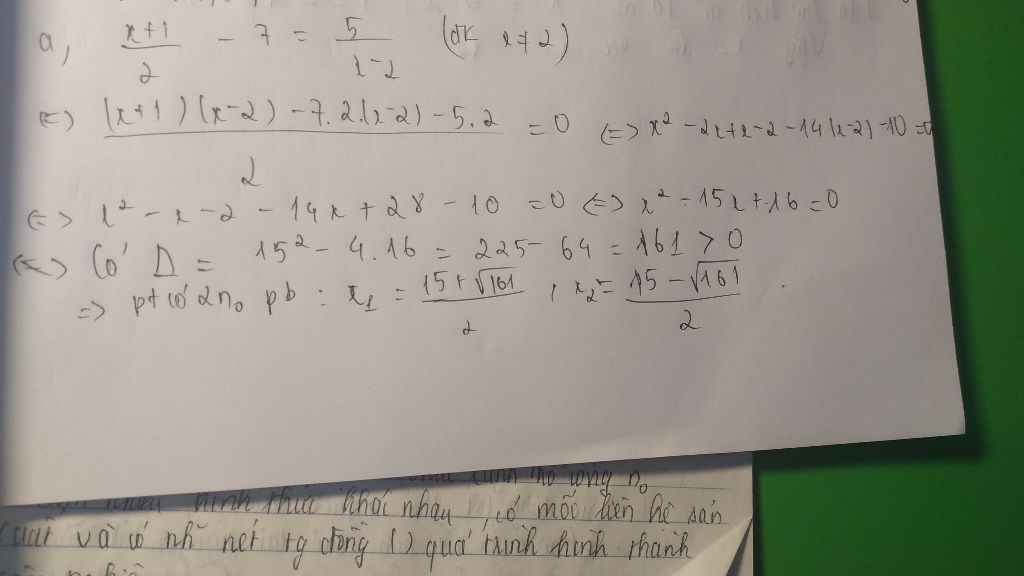 a, (x+1)/2 - 7 = 5/(x-2) (đk x≠2)
<=> ((x+1)(x-2) - 7.2.(x-2) - 5.2)/2 = 0 <=> x² - 2x + x - 2 - 14(x-2) - 10 = 0
<=> x² - x - 2 - 14x + 28 - 10 = 0 <=> x² - 15x + 16 = 0
<=> Có Δ = 15² - 4.16 = 225 - 64 = 161 > 0
=> pt có 2 n₀ pb : x₁ = (15+√161)/2 , x₂ = (15-√161)/2 .
n₀
hình thức khác nhau, có mối liên hệ sản
và có nh~ nét tg đồng () quá trình hình thành